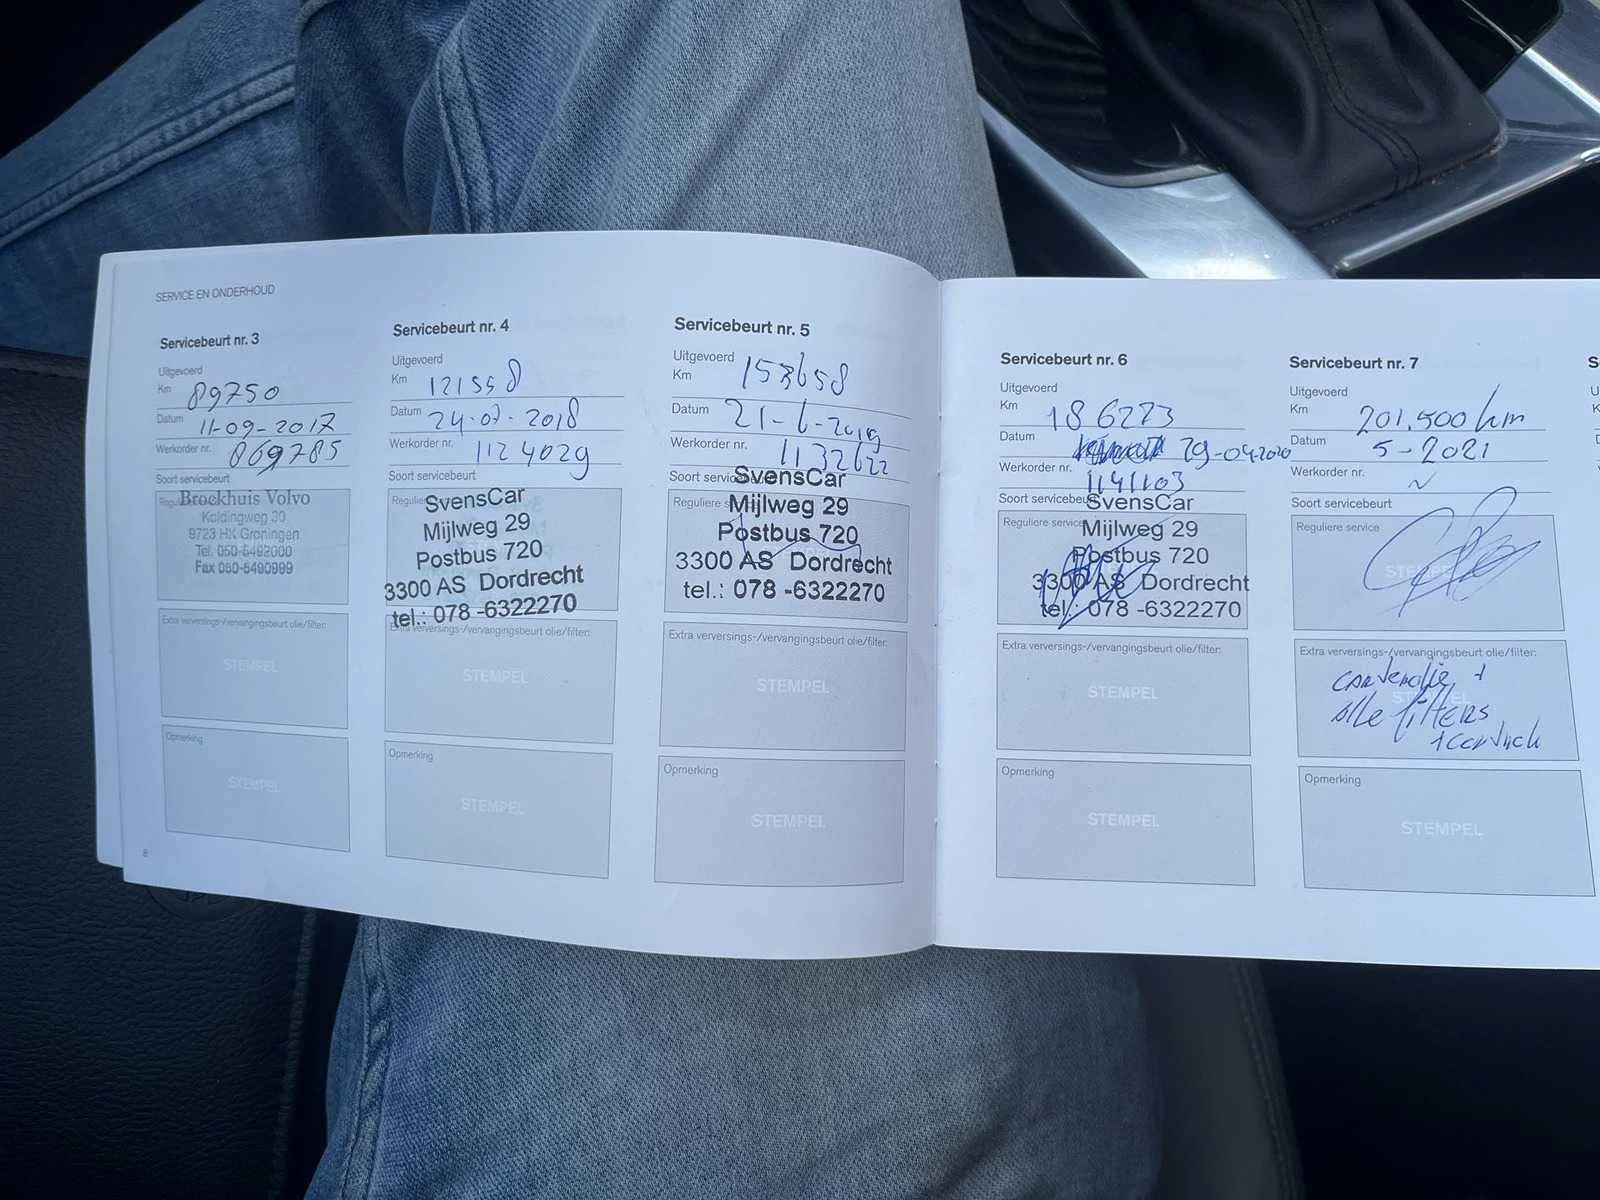 SERVICE EN ONDERHOUD
Servicebeurt nr. 3
Uitgevoerd
Km 89750
Datum 11-09-2017
Werkorder nr. 869785
Soort servicebeurt
Brockhuis Volvo
Koldingweg 30
9723 HK Groningen
Tel. 050-5492000
Fax 050-5490999
Extra verversings-/vervangingsbeurt olie/filter:
STEMPEL
Opmerking
STEMPEL
8
Servicebeurt nr. 4
Uitgevoerd
Km 121558
Datum 24-07-2018
Werkorder nr. 1124029
Soort servicebeurt
SvensCar
Mijlweg 29
Postbus 720
3300 AS Dordrecht
tel.: 078 -6322270
Extra verversings-/vervangingsbeurt olie/filter:
STEMPEL
Opmerking
STEMPEL
Servicebeurt nr. 5
Uitgevoerd
Km 153658
Datum 21-6-2019
Werkorder nr. 1132622
Soort
SvensCar
Reguliere
Mijlweg 29
Postbus 720
3300 AS Dordrecht
tel.: 078 -6322270
Extra verversings-/vervangingsbeurt olie/filter:
STEMPEL
Opmerking
STEMPEL
Servicebeurt nr. 6
Uitgevoerd
Km 186223
Datum 29-04-2020
Werkorder nr. 1141103
Soort servicebeurt
SvensCar
Reguliere service
Mijlweg 29
Postbus 720
3300 AS Dordrecht
tel.: 078 -6322270
Extra verversings-/vervangingsbeurt olie/filter:
STEMPEL
Opmerking
STEMPEL
Servicebeurt nr. 7
Uitgevoerd
Km 201.500 km
Datum 5-2021
Werkorder nr. ~
Soort servicebeurt
Reguliere service
STEMPEL
Extra verversings-/vervangingsbeurt olie/filter:
carterolie +
alle filters
STEMPEL
Opmerking
STEMPEL